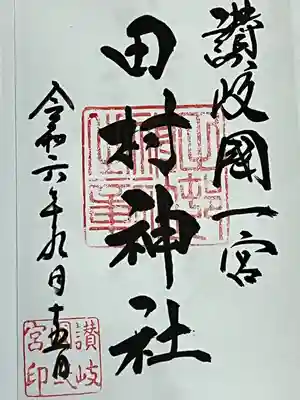 讃岐國一宮
田村神社
令和六年九月十五日
讃岐
國弌
宮印